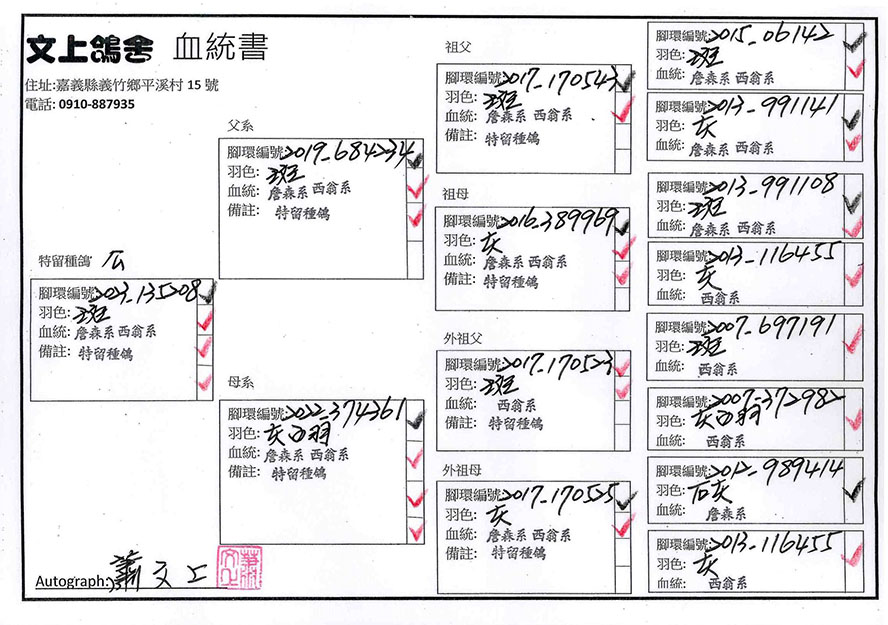 文上鴿舍 血統書
住址:嘉義縣義竹鄉平溪村 15 號
電話: 0910-887935
特留種鴿
腳環編號:2023-135208
羽色:斑
血統:詹森系 西翁系
備註: 特留種鴿
父系
腳環編號:2019-684234
羽色:斑
血統:詹森系 西翁系
備註: 特留種鴿
母系
腳環編號:2022-374361
羽色:灰白羽
血統:詹森系 西翁系
備註: 特留種鴿
祖父
腳環編號:2017-170543
羽色:斑
血統:詹森系 西翁系
備註: 特留種鴿
祖母
腳環編號:2016-389969
羽色:灰
血統:詹森系 西翁系
備註: 特留種鴿
外祖父
腳環編號:2017-170523
羽色:斑
血統: 西翁系
備註: 特留種鴿
外祖母
腳環編號:2017-170525
羽色:灰
血統:詹森系 西翁系
備註: 特留種鴿
腳環編號:2015-06142
羽色:斑
血統:詹森系 西翁系
腳環編號:2013-991141
羽色:灰
血統:詹森系 西翁系
腳環編號:2013-991108
羽色:斑
血統:詹森系 西翁系
腳環編號:2013-116455
羽色:灰
血統: 西翁系
腳環編號:2007-697191
羽色:斑
血統: 西翁系
腳環編號:2007-372982
羽色:灰白羽
血統: 西翁系
腳環編號:2012-989414
羽色:石灰
血統: 詹森系
腳環編號:2013-116455
羽色:灰
血統: 西翁系
Autograph: 蕭文上